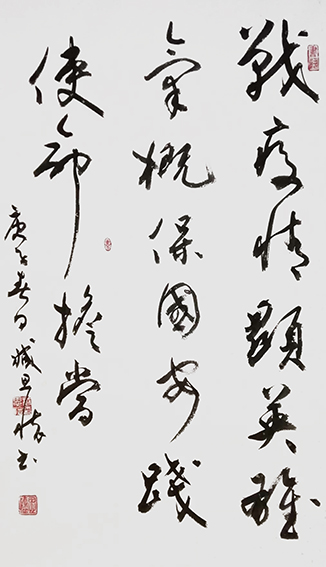 戰疫情顯英雄
氣概保國安踐
使命擔當
庚子春日臧旦書